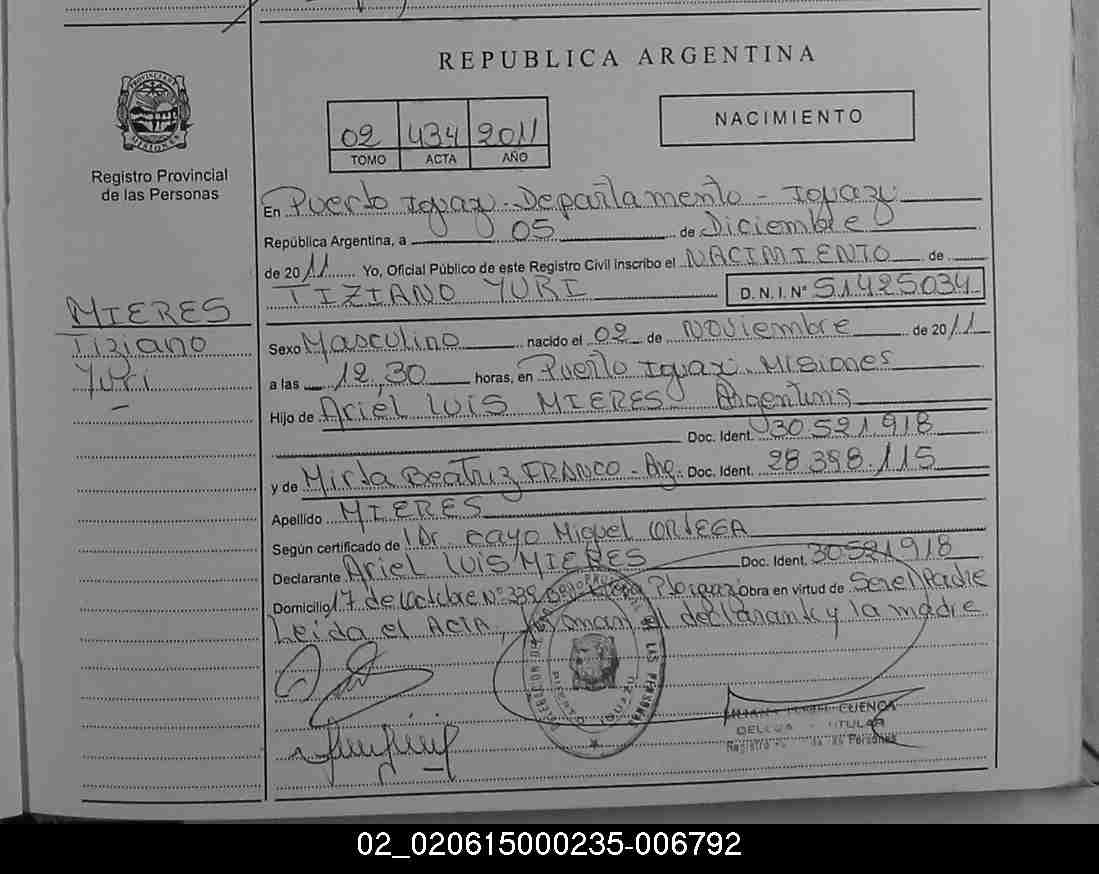 REPUBLICA ARGENTINA
PROVINCIA DE MISIONES
Registro Provincial
de las Personas
02 434 2011
TOMO ACTA AÑO
NACIMIENTO
En Puerto Iguazú - Departamento - Iguazú
República Argentina, a 05 de Diciembre
de 2011 Yo, Oficial Público de este Registro Civil inscribo el NACIMIENTO de
TIZIANO YURI D.N.I. Nº 51425034
MIERES
Tiziano
Yuri
Sexo Masculino nacido el 02 de Noviembre de 2011
a las 12,30 horas, en Puerto Iguazú. Misiones
Hijo de Ariel LUIS MIERES Argentino
Doc. Ident. 30521918
y de Mirta Beatriz FRANCO - Arg. Doc. Ident. 28.398.115
Apellido MIERES
Según certificado de Dr. Cayo Miguel ORTEGA
Declarante Ariel LUIS MIERES Doc. Ident. 30521918
Domicilio 17 de Octubre Nº 339 Obra en virtud de Ser el Padre
Leida el ACTA, firman el declarante y la madre
CUENCA
TITULAR
Registro de las Personas
02_020615000235-006792